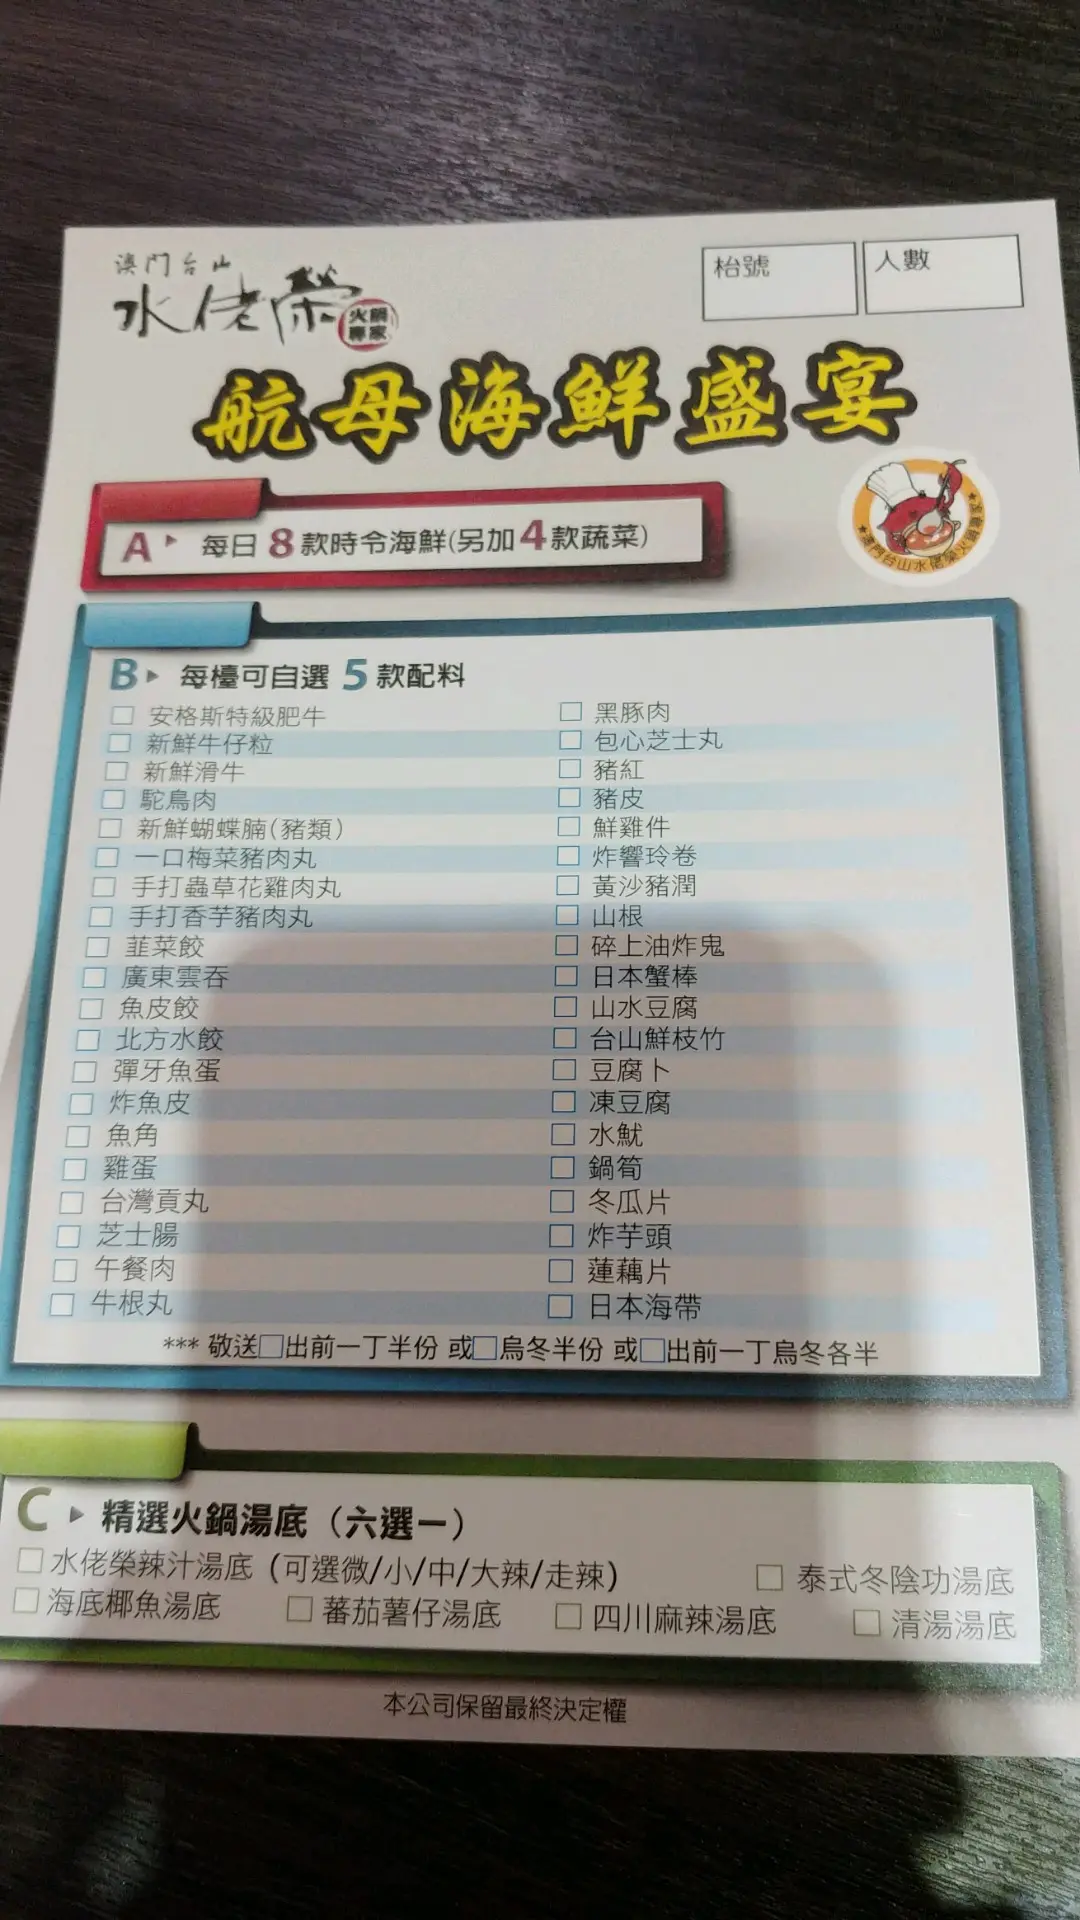 澳門台山
水佬榮
火鍋
專家
枱號
人數
航母海鮮盛宴
A 每日8款時令海鮮(另加4款蔬菜)
澳門台山水佬榮火鍋專家
B 每檯可自選 5 款配料
安格斯特級肥牛
新鮮牛仔粒
新鮮滑牛
駝鳥肉
新鮮蝴蝶腩(豬類)
一口梅菜豬肉丸
手打蟲草花雞肉丸
手打香芋豬肉丸
韮菜餃
廣東雲吞
魚皮餃
北方水餃
彈牙魚蛋
炸魚皮
魚角
雞蛋
台灣貢丸
芝士腸
午餐肉
牛根丸
黑豚肉
包心芝士丸
豬紅
豬皮
鮮雞件
炸響玲卷
黃沙豬潤
山根
碎上油炸鬼
日本蟹棒
山水豆腐
台山鮮枝竹
豆腐卜
凍豆腐
水魷
鍋筍
冬瓜片
炸芋頭
蓮藕片
日本海帶
*** 敬送□出前一丁半份 或□烏冬半份 或□出前一丁烏冬各半
C 精選火鍋湯底（六選一）
水佬榮辣汁湯底 (可選微/小/中/大辣/走辣)
泰式冬陰功湯底
海底椰魚湯底
蕃茄薯仔湯底
四川麻辣湯底
清湯湯底
本公司保留最終決定權